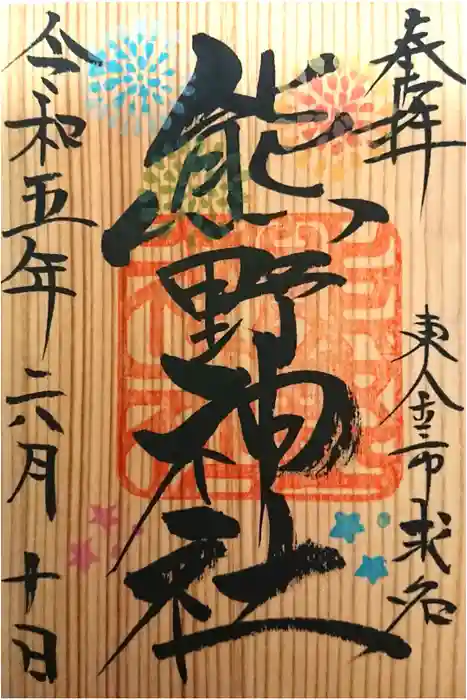 奉拝
東金市求名
熊野神社
令和五年六月十日